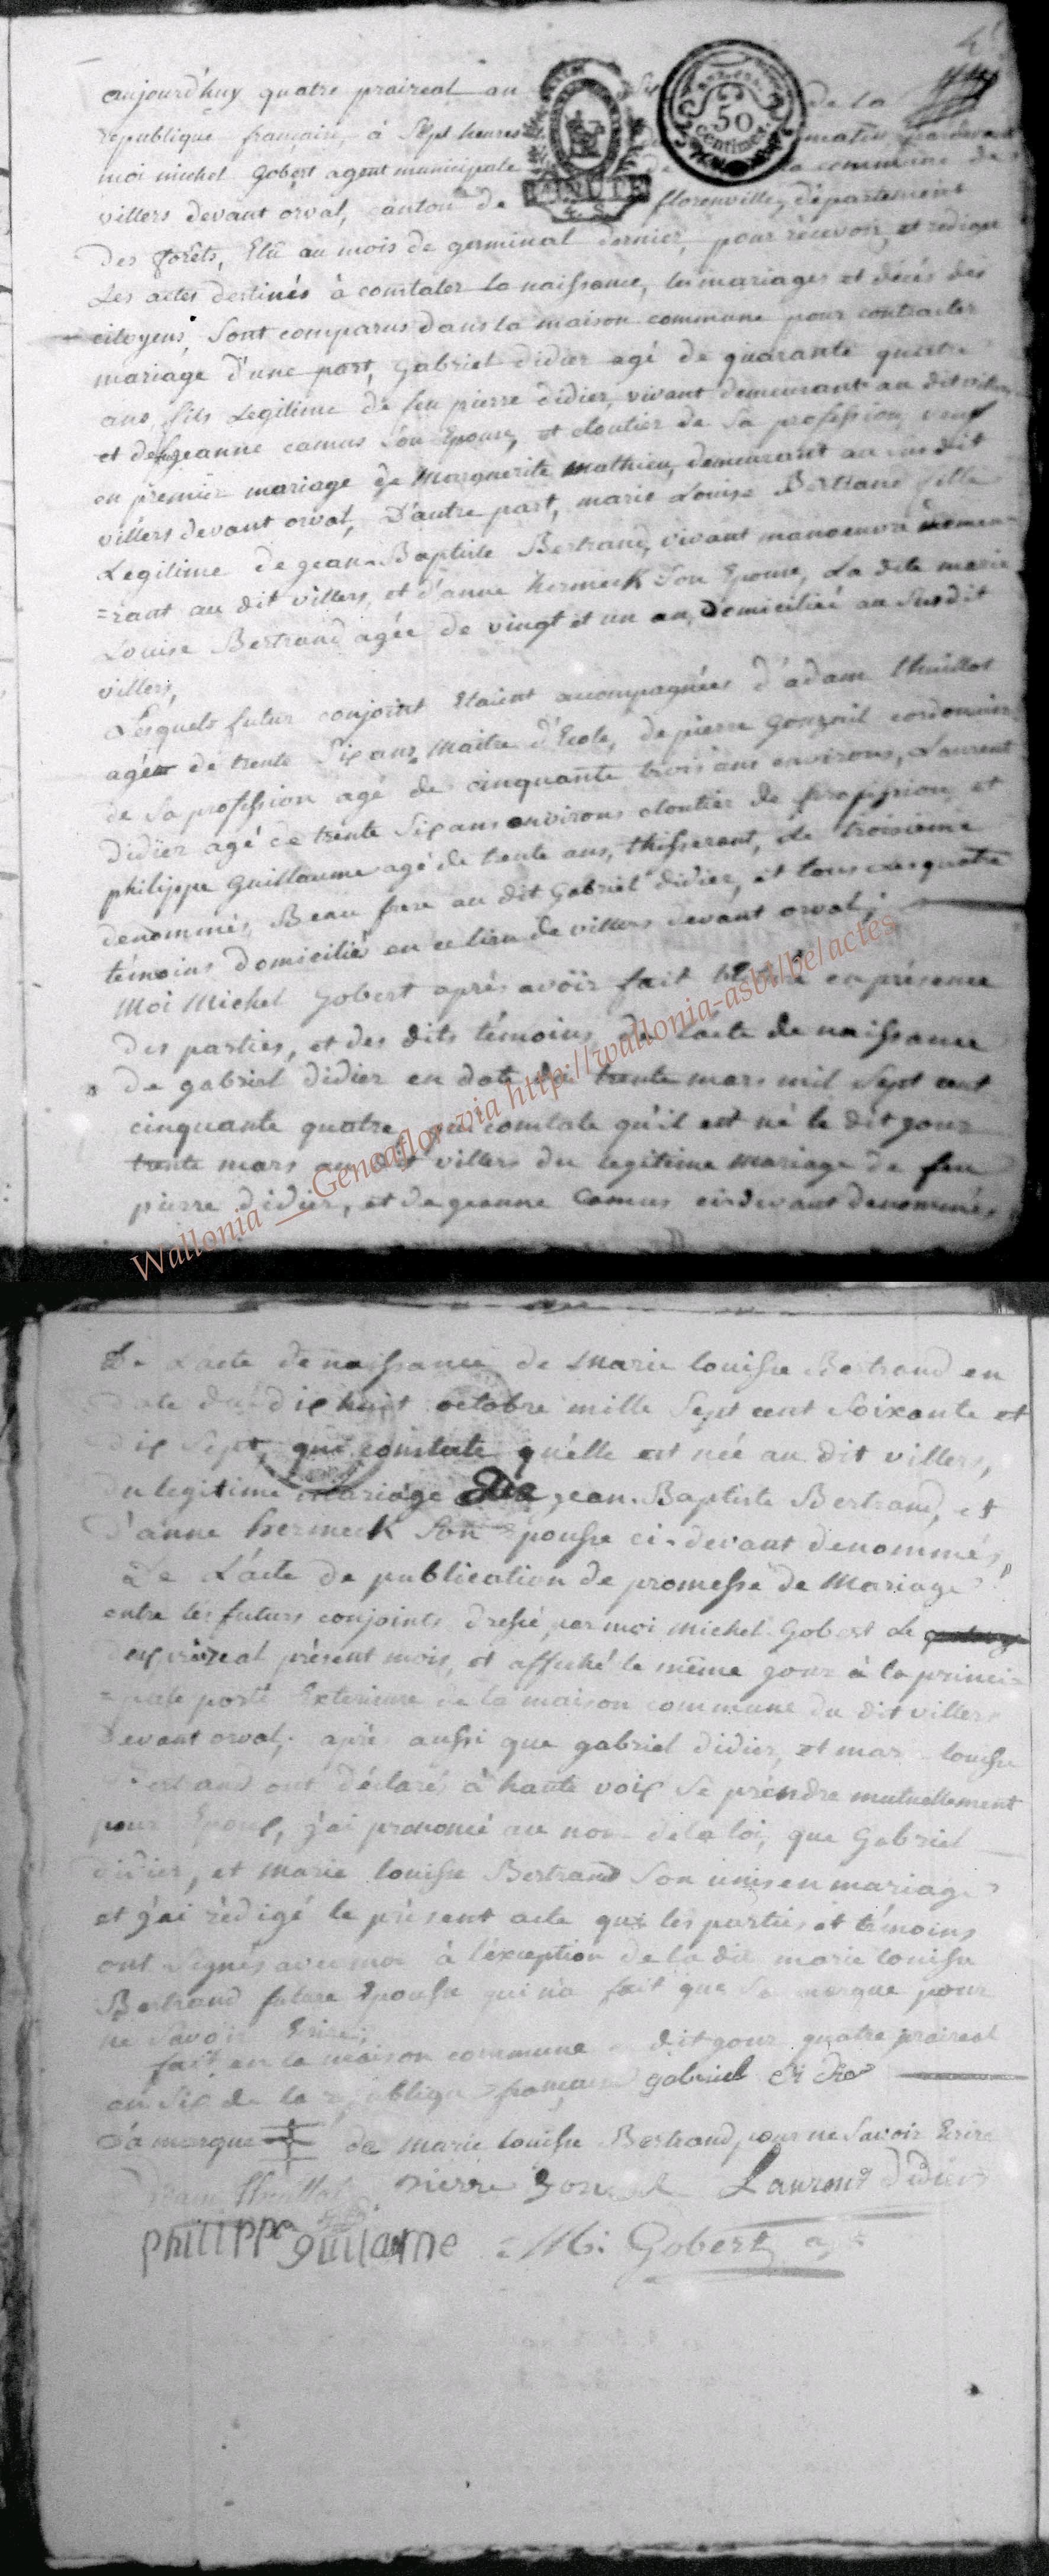 aujourd'huy quatre praireal an Six de la
republique française, à Sept heures du matin, pardevant
moi michel Gobert agent municipale de la commune de
villers devant orval, canton de florenville, département
Des forêts, Elû au mois de germinal dernier, pour récevoir et rediger
Les actes destinés à constater la naissance, les mariages et décés des
citoyens, Sont comparus dans la maison commune pour contracter
mariage d'une part, Gabriel didier agé de quarante quatre
ans, fils Legitime de feu pierre didier, vivant demeurant au dit villers
et de geanne camus Son Epouse, et cloutier de Sa profession, veuf
en premier mariage de Marguerite Mathieu, demeurant au susdit
villers devant orval, D'autre part, marie Louise Bertrand fille
Legitime de gean-Baptiste Bertrand, vivant manoeuvre demeu-
=rant au dit villers, et d'anne hermeck Son Epouse, La dite marie
Louise Bertrand agée de vingt et un an, Domiciliée au Susdit
villers,
Lesquels futur conjoint Etaient accompagnées d'adam thuillot
agé de trente Six ans, Maitre d'Ecole, de pierre Gonzail cordonnier
de Sa profession agé de cinquante trois ans environs, Laurent
Didier agé de trente Six ans environs cloutier de profission, et
philippe Guillaume agé de trente ans, thisserant, Le troisieme
denommés, Beau frere au dit Gabriel didier, et tous les quatre
témoins Domicilié en ce lieu de villers devant orval;
Moi Michel Gobert aprés avoir fait lecture en présence
Des parties, et des dits témoins, De Lacte de naissance
De gabriel Didier en date du trente mars mil Sept cent
cinquante quatre, qui constate qu'il est né le dit gour
trente mars au dit villers du legitime mariage de feu
pierre didier, et de geanne Camus ci-devant denommés
De Lacte de naissance de Marie louisse Bertrand en
Date du dix huit octobre mille Sept cent Soixante et
dix Sept, qui constate qu'elle est née au dit villers,
Du legitime mariage De gean-Baptiste Bertrand, et
D'anne hermeck Son Epousse ci-devant denommés,
De L'acte de publication de promesse de Mariage
entre les futurs conjoints dressé par moi Michel Gobert Le
deux praireal présent mois, et affiché le même gour à la princi-
=pale porte Exterieure de la maison commune du dit villers
Devant orval; aprés aussi que gabriel didier, et marie louisse
Bertrand ont déclarés à haute voix Se prendre mutuellement
pour Epoux, j'ai prononcé au nom de la loi, que Gabriel
didier, et marie louisse Bertrand Son unis en mariage
et j'ai rédigé le présent acte que les parties et témoins
ont Signés avec moi à l'éxception de la dite marie louisse
Bertrand future Epousse qui n'a fait que Sa marque pour
ne Savoir Ecrire;
fait en la maison commune dit gour quatre praireal
an Six de la république française gabriel didier
Sa marque de marie louisse Bertrand, pour ne Savoir Ecrire
adam thuillot pierre Laurent didier
philippe guillaume Mi: Gobert agt
50
centimes
Wallonia _ Geneaflor via http://wallonia-asbl/be/actes